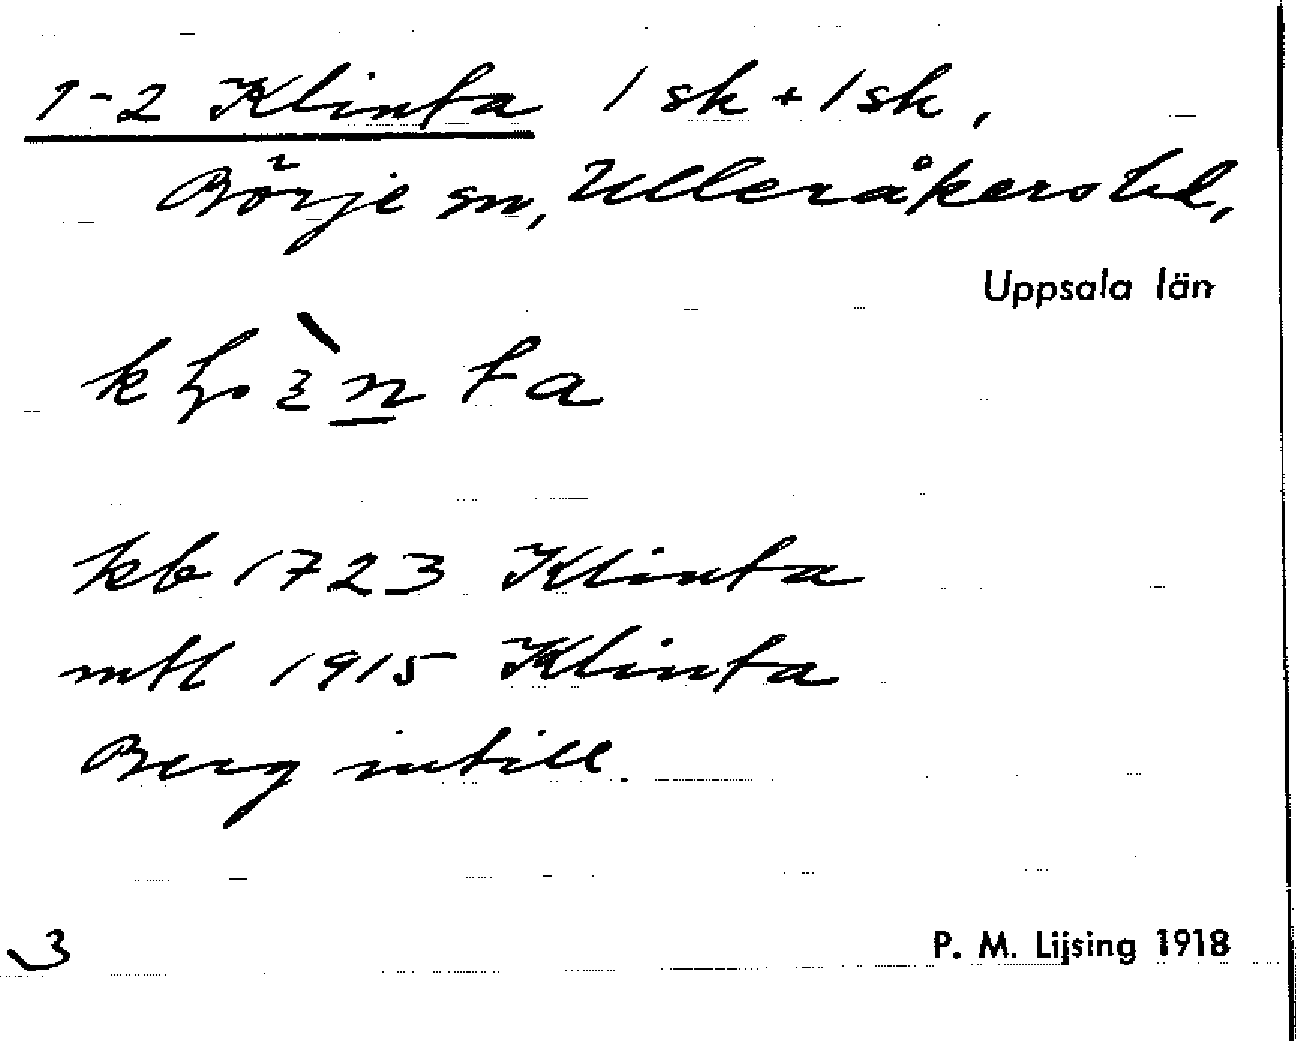 1-2 Klinta 1 sk + 1 sk,
Börje sn, Ulleråkers hd,
Uppsala län
kb 1723 Klinta
mtl 1915 Klinta
Berg intill.
3
P. M. Lijsing 1918